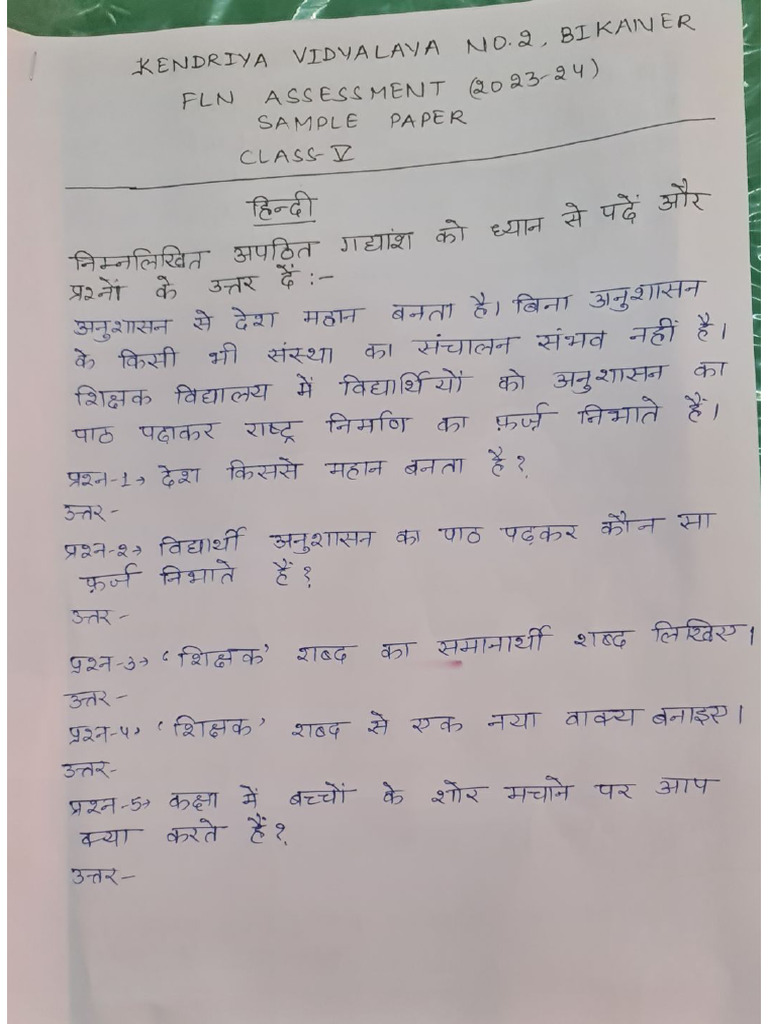 KENDRIYA VIDYALAYA NO.2, BIKANER
FLN ASSESSMENT (2023-24)
SAMPLE PAPER
CLASS-V
हिन्दी
निम्नलिखित अपठित गद्यांश को ध्यान से पढ़ें और
प्रश्नों के उत्तर दें :-
अनुशासन से देश महान बनता है। बिना अनुशासन
के किसी भी संस्था का संचालन संभव नहीं है।
शिक्षक विद्यालय में विद्यार्थियों को अनुशासन का
पाठ पढ़ाकर राष्ट्र निर्माण का फ़र्ज़ निभाते हैं।
प्रश्न-1→ देश किससे महान बनता है?
उत्तर-
प्रश्न-2→ विद्यार्थी अनुशासन का पाठ पढ़कर कौन सा
फ़र्ज निभाते हैं?
उत्तर-
प्रश्न-3→ 'शिक्षक' शब्द का समानार्थी शब्द लिखिए।
उत्तर-
प्रश्न-4→ 'शिक्षक' शब्द से एक नया वाक्य बनाइए।
उत्तर-
प्रश्न-5→ कक्षा में बच्चों के शोर मचाने पर आप
क्या करते हैं?
उत्तर-